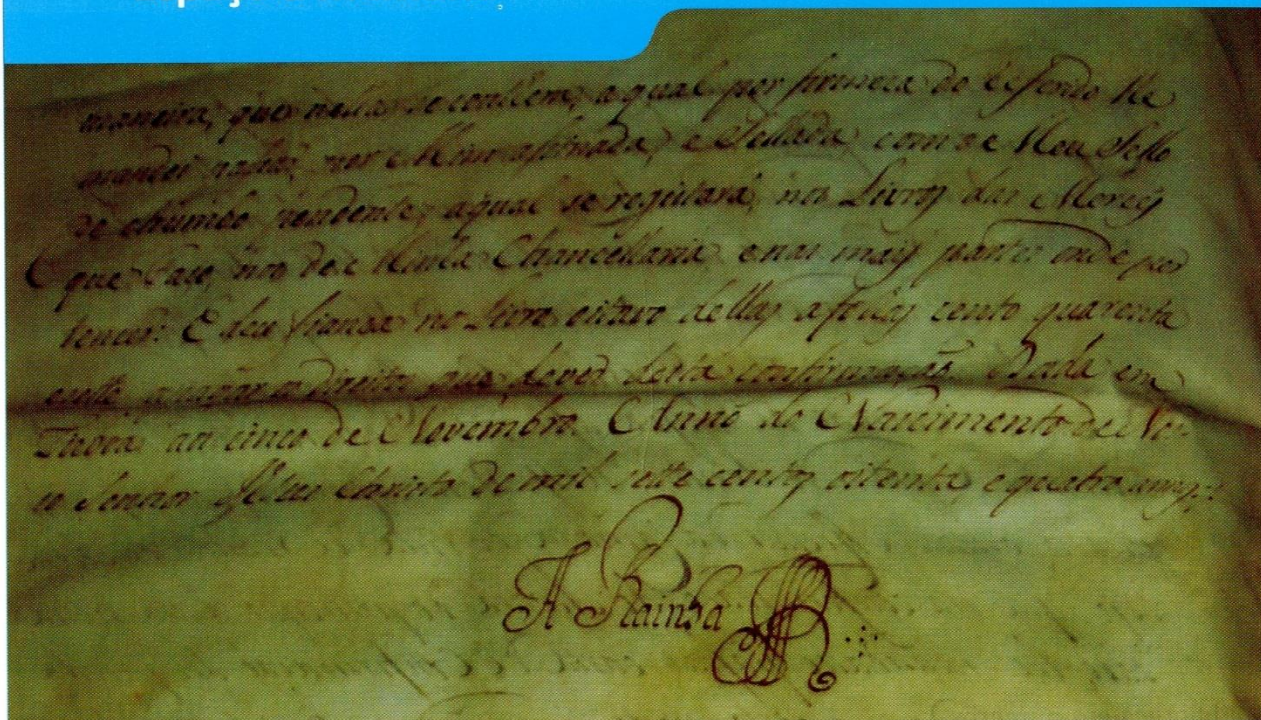 maneira, que nella se contem, a qual por firmeza do referido lhe
mandei passar, por Mim assinada, e Sellada com o Meu Sello
de chumbo pendente, a qual se registará, nos Livros das Mercês
que Faço, nos de Minha Chancellaria, e nas mais partes onde per
tencer. E deu fiansa no Livro oitavo dellas a folhas cento quarenta
a pagar os direitos que dever desta confirmação Dada em
aos cinco de Novembro. Anno do Nascimento de Nos-
so Senhor Jesus Christo de mil sette centos oitenta, e quatro annos
A Rainha